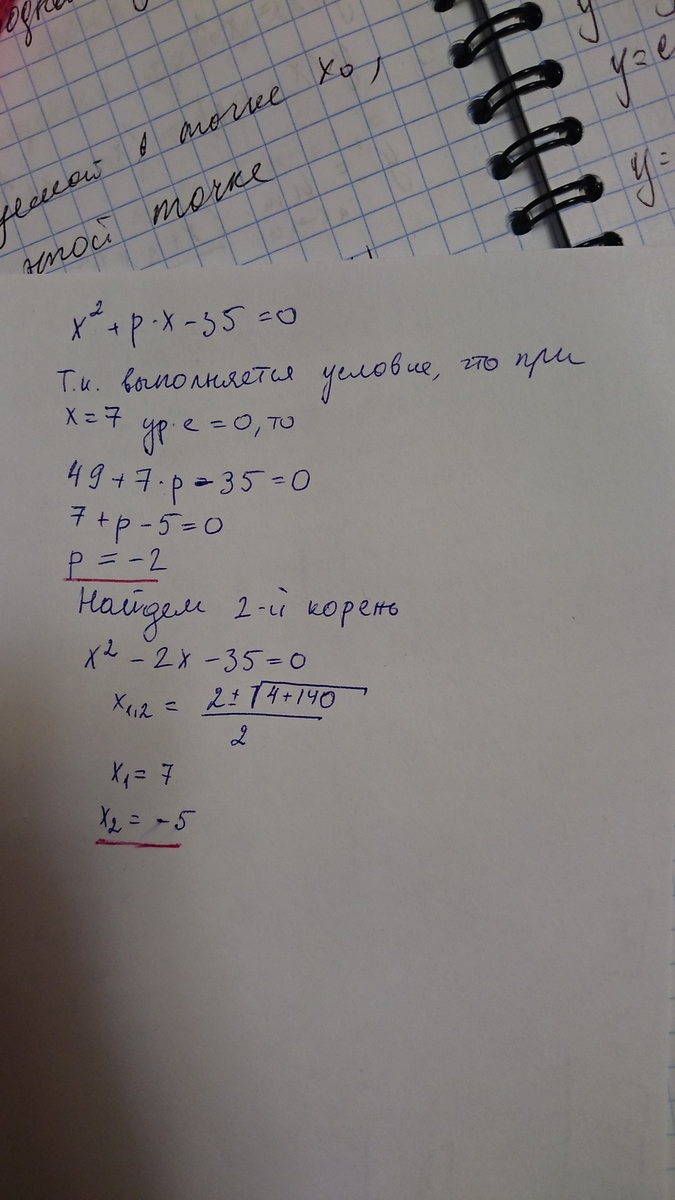 в точке x₀,
этой точке
y
y=e
y=
x² + p·x − 35 = 0
Т.к. выполняется условие, что при
x = 7 ур-е = 0, то
49 + 7·p − 35 = 0
7 + p − 5 = 0
p = −2
Найдем 2-й корень
x² − 2x − 35 = 0
x₁,₂ = (2 ± √(4+140)) / 2
x₁ = 7
x₂ = −5